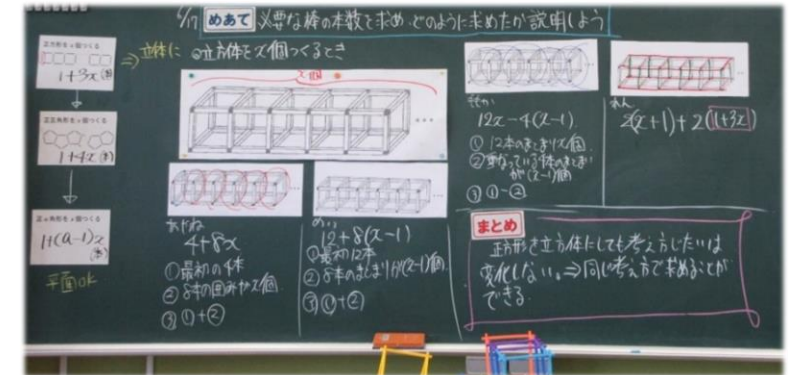 6/17 めあて 必要な棒の本数を求め、どのように求めたか説明しよう
正方形をx個つくる
1+3x(本)
正五角形をx個つくる
1+4x(本)
正a角形をx個つくる
1+(a-1)x
(本)
平面OK
⇒立体に
◎立方体をx個つくるとき
x個
あかね
4+8x
①最初の4本
②8本の囲みがx個
③①+②
めい
12+8(x-1)
①最初12本
②8本のまとまりが(x-1)個
③①+②
12x-4(x-1)
①12本のまとまりx個
②重なっている4本のまとまり
が(x-1)個
③①-②
れん
2(x+1)+2(1+3x)
まとめ
正方形を立方体にしても考え方じたいは
変化しない。⇒同じ考え方で求めることが
できる。